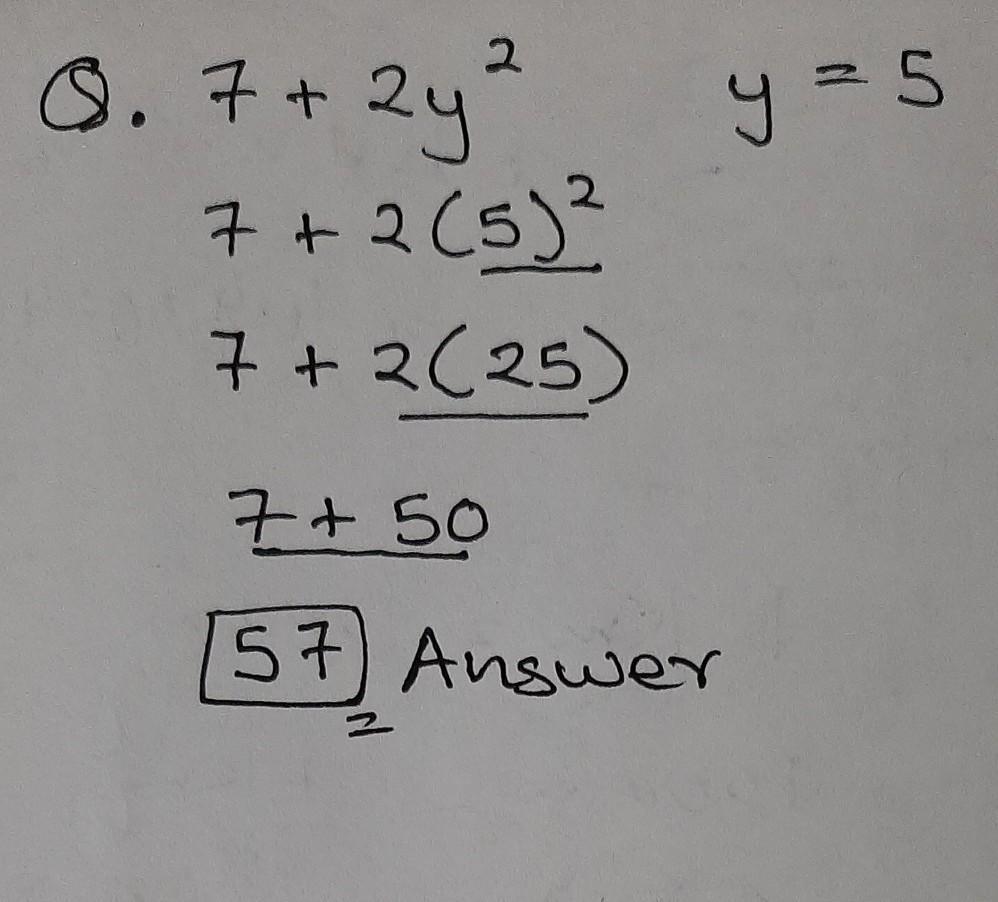 Q. 7 + 2y² y = 5
7 + 2(5)²
7 + 2(25)
7 + 50
57 Answer